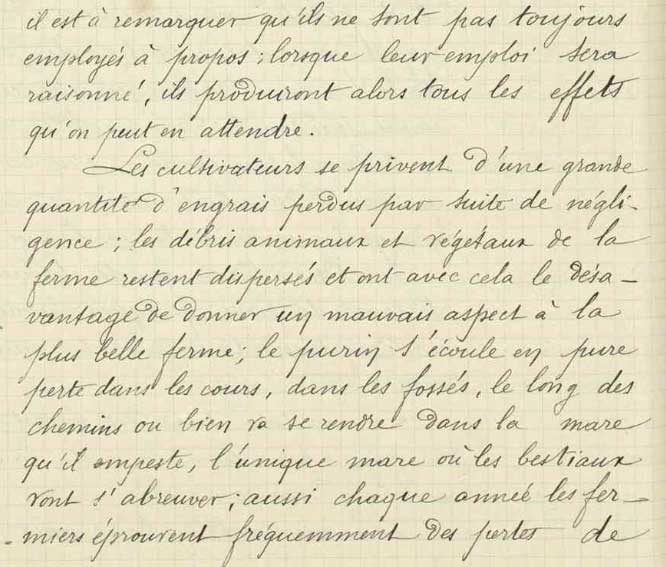 il est à remarquer qu'ils ne sont pas toujours
employés à propos ; lorsque leur emploi sera
raisonné, ils produiront alors tous les effets
qu'on peut en attendre.
Les cultivateurs se privent d'une grande
quantité d'engrais perdus par suite de négli-
gence ; les débris animaux et végétaux de la
ferme restent dispersés et ont avec cela le désa-
vantage de donner un mauvais aspect à la
plus belle ferme ; le purin s'écoule en pure
perte dans les cours, dans les fossés, le long des
chemins ou bien va se rendre dans la mare
qu'il empeste, l'unique mare où les bestiaux
vont s'abreuver ; aussi chaque année les fer-
miers éprouvent fréquemment des pertes de